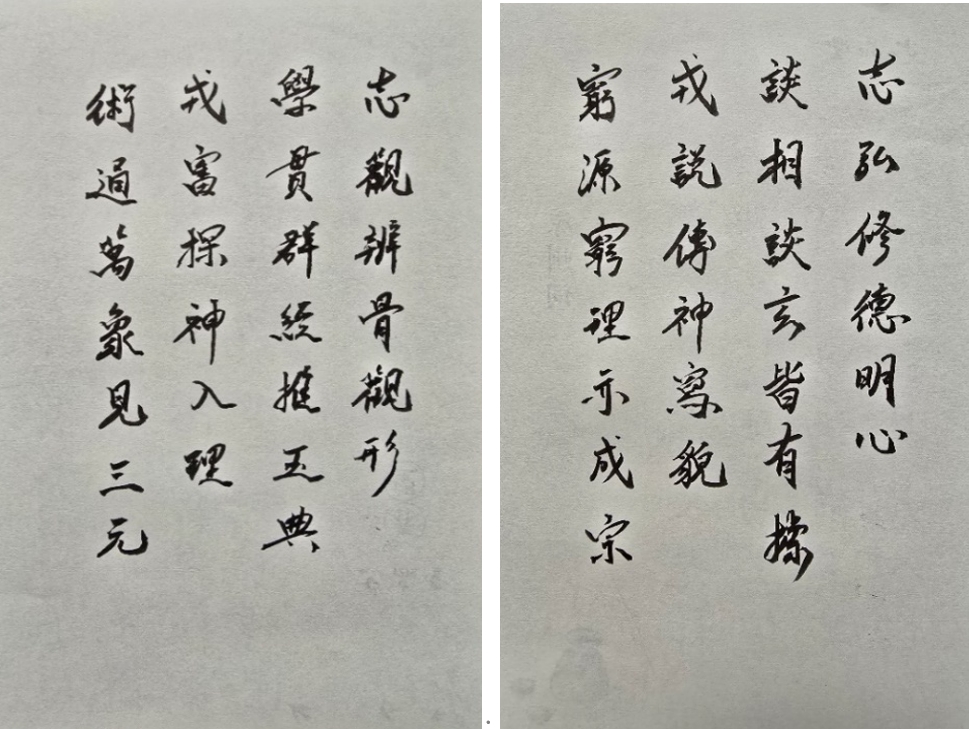 志弘修德明心
談相談玄皆有據
戎說傳神寫貌
窮源窮理亦成宗
志觀辨骨觀形
學貫群經推玉典
戎富探神入理
術通萬象見三元